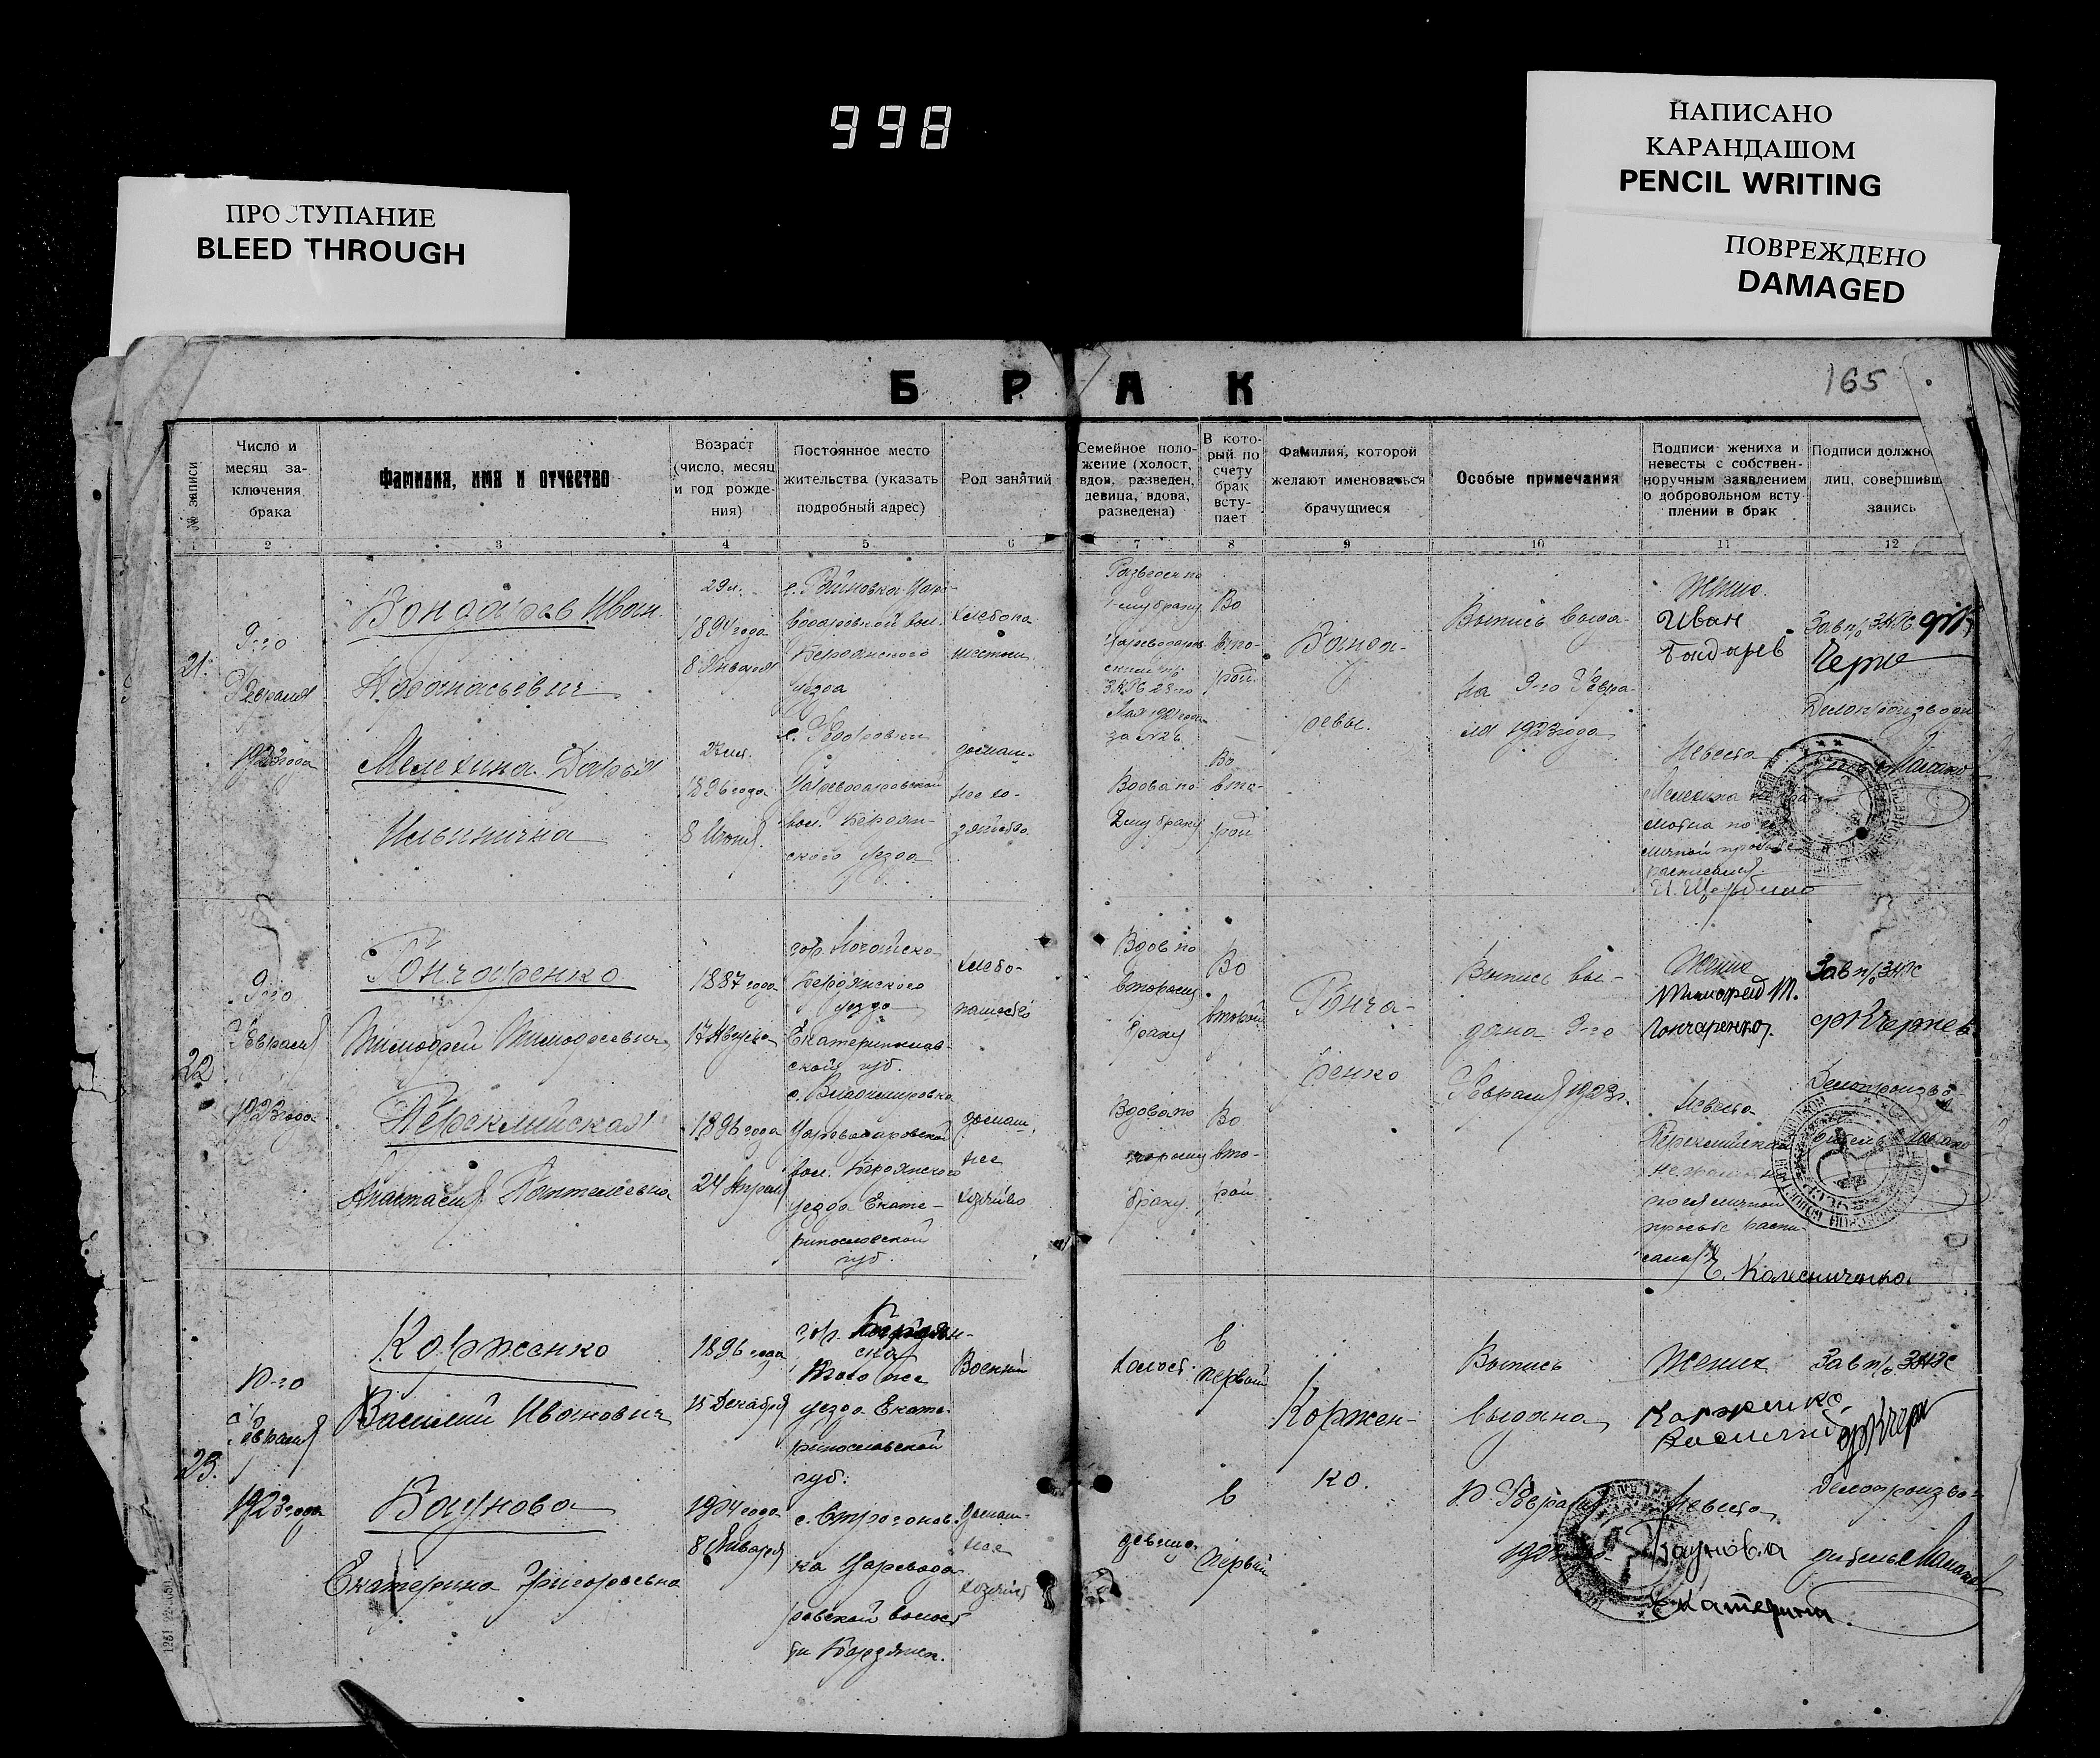 998
ПРОСТУПАНИЕ
BLEED THROUGH
НАПИСАНО
КАРАНДАШОМ
PENCIL WRITING
ПОВРЕЖДЕНО
DAMAGED
БРАК
165
№ записи
Число и
месяц за-
ключения
брака
Фамилия, имя и отчество
Возраст
(число, месяц
и год рожде-
ния)
Постоянное место
жительства (указать
подробный адрес)
Род занятий
Семейное поло-
жение (холост,
вдов, разведен,
девица, вдова,
разведена)
В кото-
рый по
счету
брак
всту-
пает
Фамилия, которой
желают именоваться
брачущиеся
Особые примечания
Подписи жениха и
невесты с собствен-
норучным заявлением
о добровольном всту-
плении в брак
Подписи должно
лиц, совершивш
запись
2 3 4 5 6 7 8 9 10 11 12
21.
9-го
Февраля
1923 года
Бондарев Иван
Афанасьевич
Мелехина Дарья
Ильинична
29 л.
1894 года
8 Января
1896 года
8 Июня
Бердянского
уезда
с. Федоровки
Цареводаровской
вол. Бердян-
ского уезда
хлебопа
шество
домаш-
нее хо-
зяйство
Разведен по
1 му браку
Вдова по
2 му браку
Во
вто-
рой
Во
вто-
рой
Бонда-
ревы.
Выпись выда-
на 9-го Февра-
ля 1923 года
Жених
Иван
Бондарев
Невеста
Зав п/о ЗАГС
Делопроизводи
22
9-го
Февраля
1923 года
Гончаренко
Тимофей Тимофеевич
Переклийская
Анастасия Пантелеевна
1887 года
17 Августа
1896 года
24 Апреля
гор. Ногайска
Бердянского
уезда
Екатеринослав-
ской губ.
с. Владимировка
Цареводаровской
вол. Бердянского
уезда Екате-
ринославской
губ.
хлебо-
пашество
домаш-
нее
хозяйство
Вдов по
второму
браку
Вдова по
второму
браку
Во
второй
Во
вто-
рой
Гонча-
ренко
Выпись вы-
дана 9-го
Февраля 1923 г.
Жених
Тимофей Т.
Гончаренко
Невеста
по ея личной
просьбе распи-
сался
Е. Колесниченко
Зав п/о ЗАГС
Делопроизво-
23.
Февраля
1923 года
Корженко
Василий Иванович
Баунова
Екатерина Григорьевна
1896 года
15 Декабря
1904 года
8 Января
гор. Бердян-
ска
того же
уезда Екате-
ринославской
губ.
с. Строганов-
ка Цареводa-
ровской волос
ти Бердянск.
Военный
домаш-
нее
хозяйст
Холост
девица
В
первый
В
первый
Коржен-
ко.
Выпись
выдана
Февраля
Жених
Корженко
Василий
Невеста
Баунова
Екатерина
Зав п/о ЗАГС
Делопроизво-
дитель